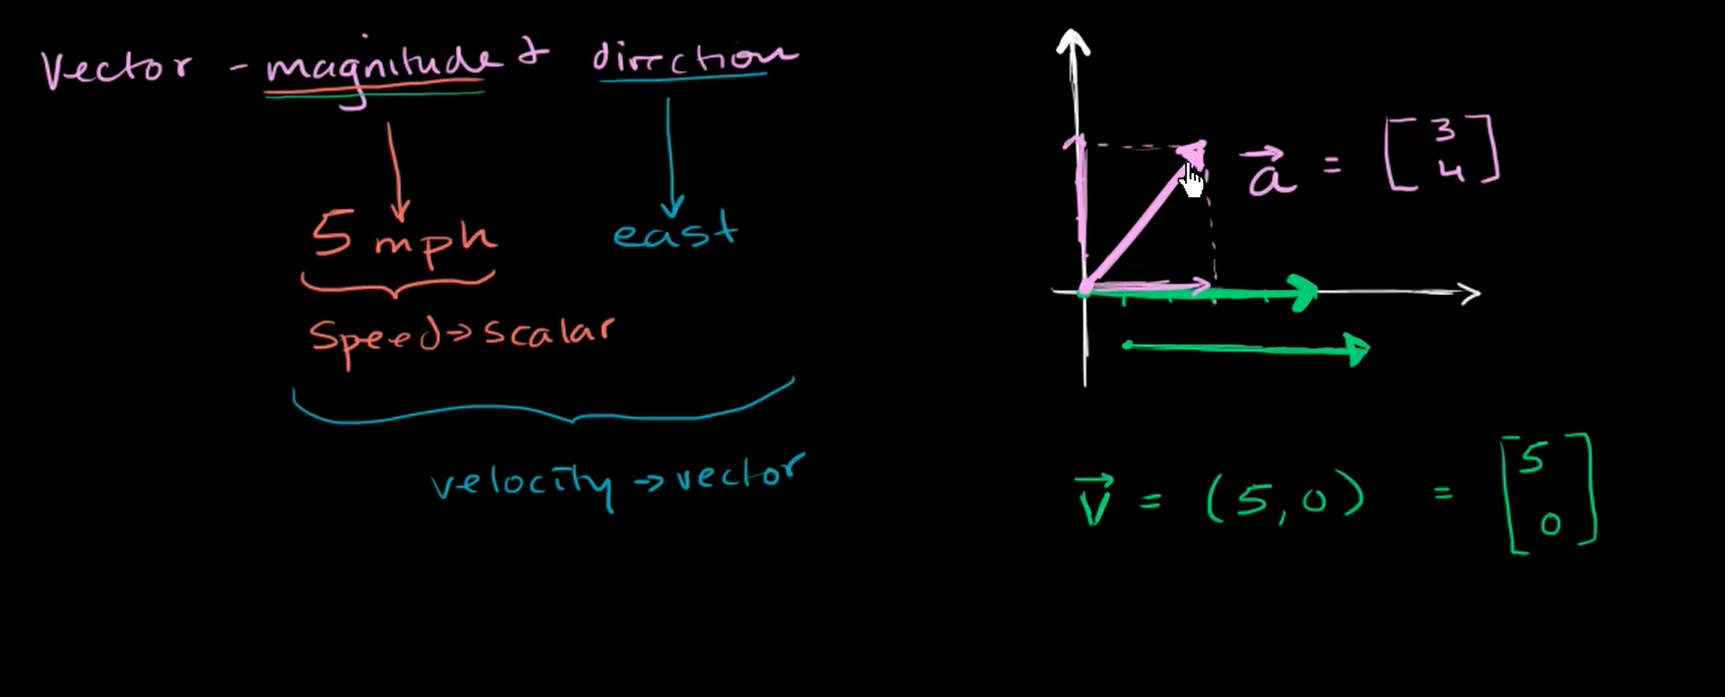 Vector - magnitude & direction
5 mph east
Speed → scalar
velocity → vector
a⃗ = [3 4]
v⃗ = (5, 0) = [5 0]